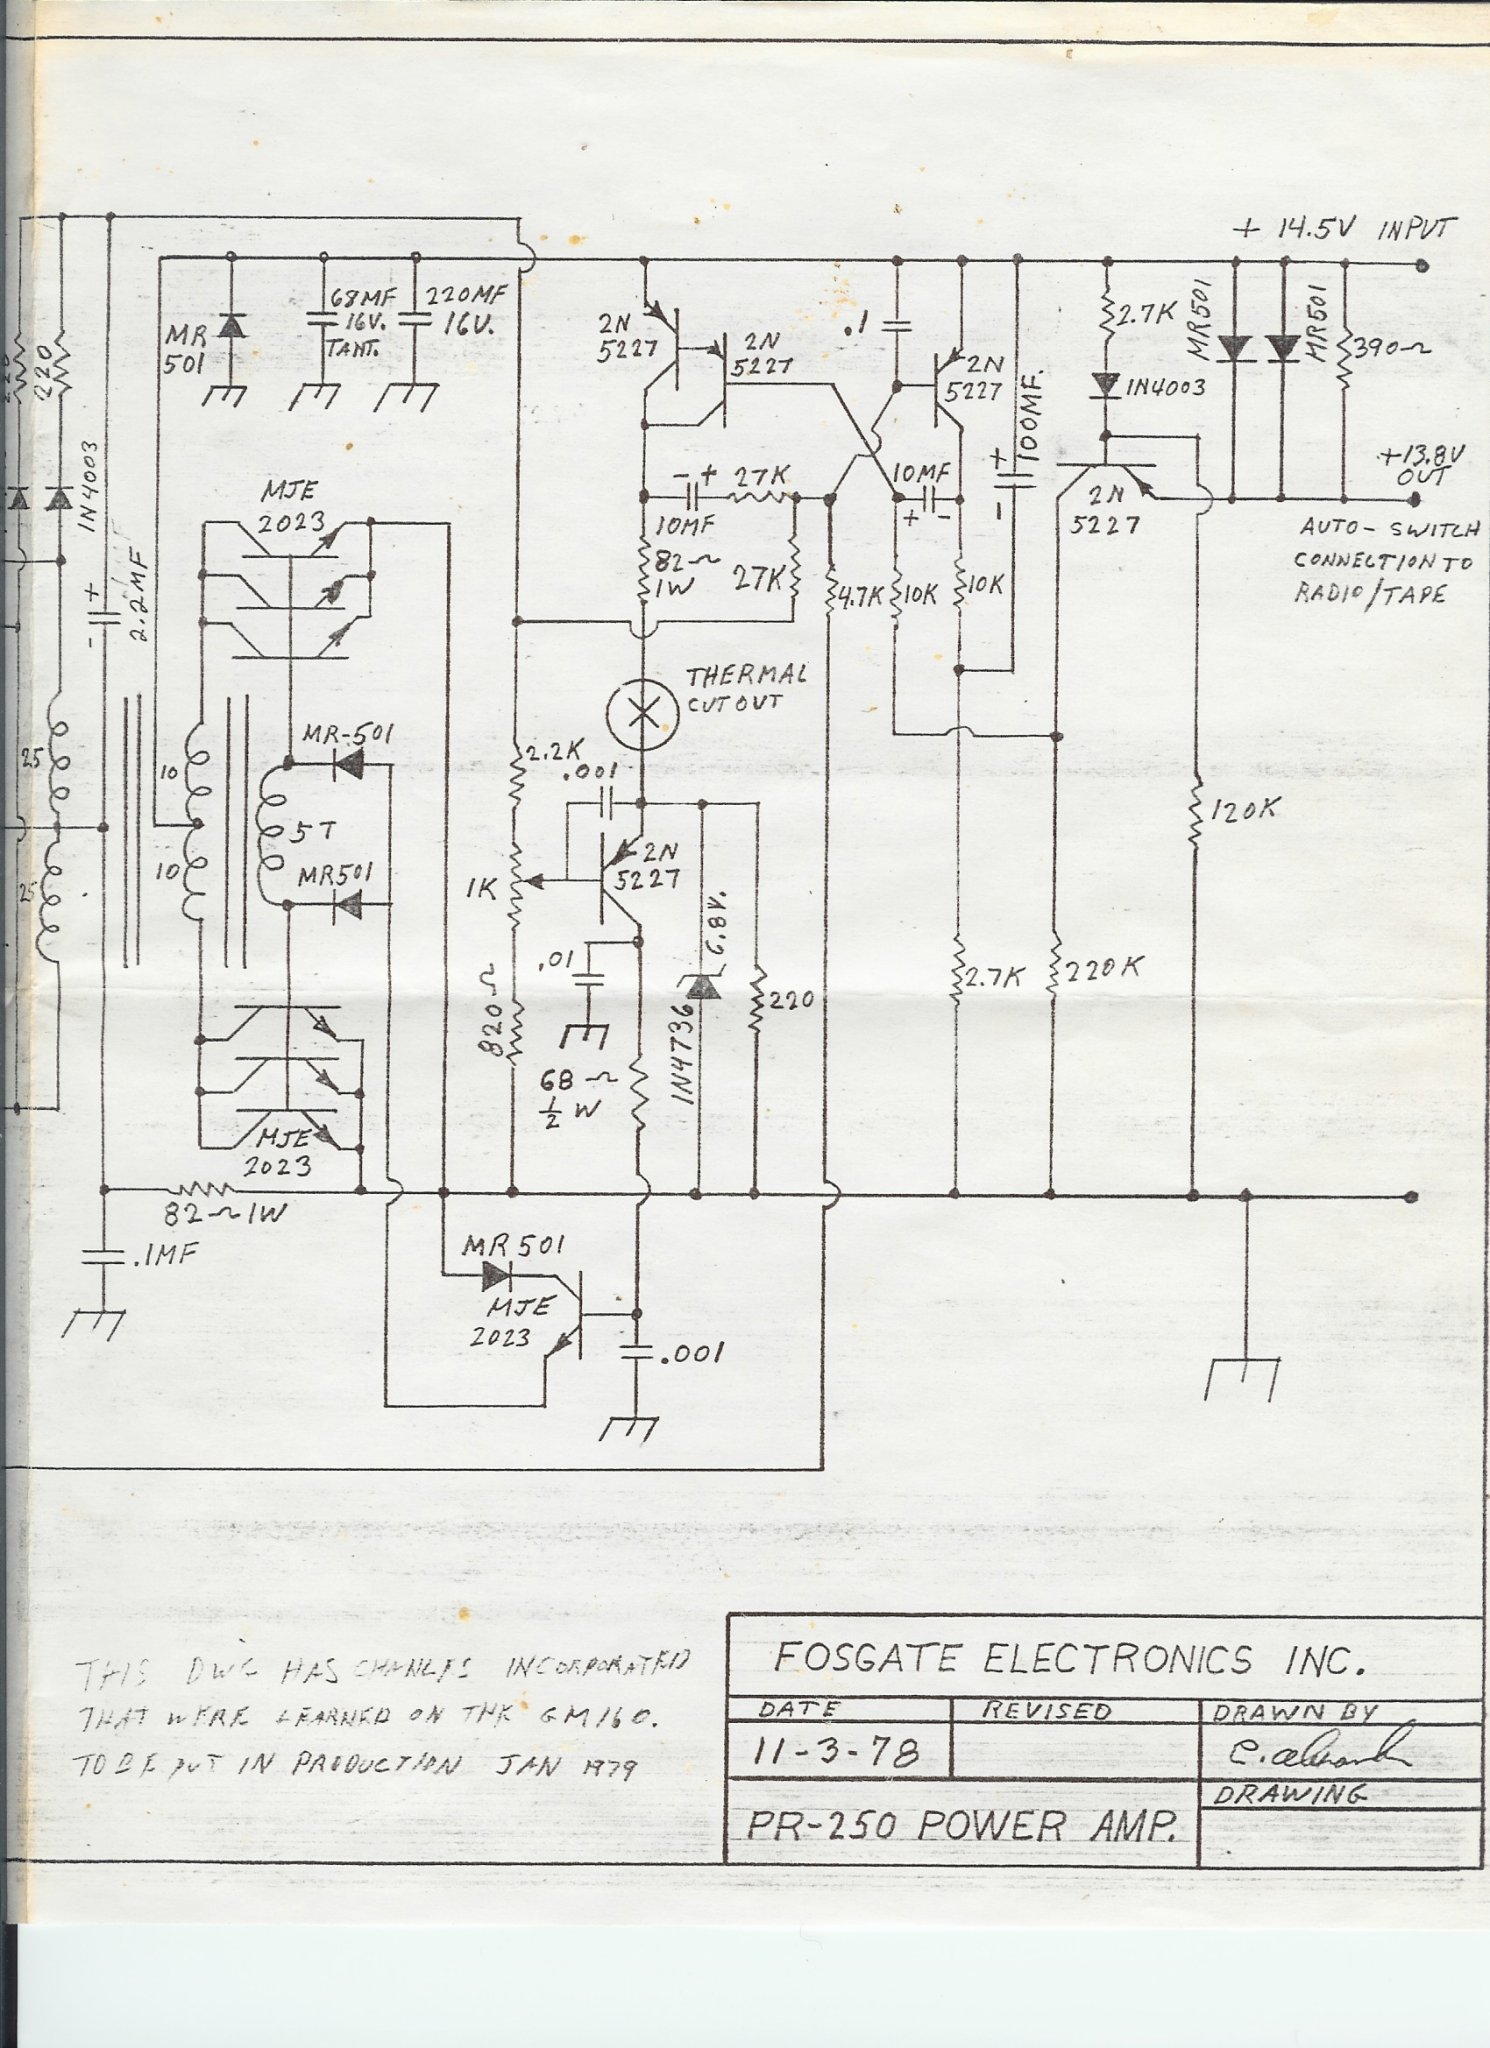 + 14.5V INPUT
220
220
MR
501
68MF
16V.
TANT.
220MF
16V.
2N
5227
2N
5227
.1
2N
5227
100MF.
+
-
2.7K
1N4003
MR501
MR501
390~
+13.8V
OUT
AUTO-SWITCH
CONNECTION TO
RADIO/TAPE
2N
5227
1N4003
+
-
2.2MF
MJE
2023
- +
10MF
27K
82~
1W
27K
4.7K
10MF
+ -
10K
10K
THERMAL
CUTOUT
MR-501
2.2K
.001
25
25
10
10
5T
MR501
1K
2N
5227
6.8V.
120K
.01
820~
1N4736
220
2.7K
220K
68~
½ W
MJE
2023
82~1W
.1MF
MR501
MJE
2023
.001
THIS DWG HAS CHANGES INCORPORATED
THAT WERE LEARNED ON THE GM160.
TO BE PUT IN PRODUCTION JAN 1979
FOSGATE ELECTRONICS INC.
DATE
REVISED
DRAWN BY
11-3-78
DRAWING
PR-250 POWER AMP.